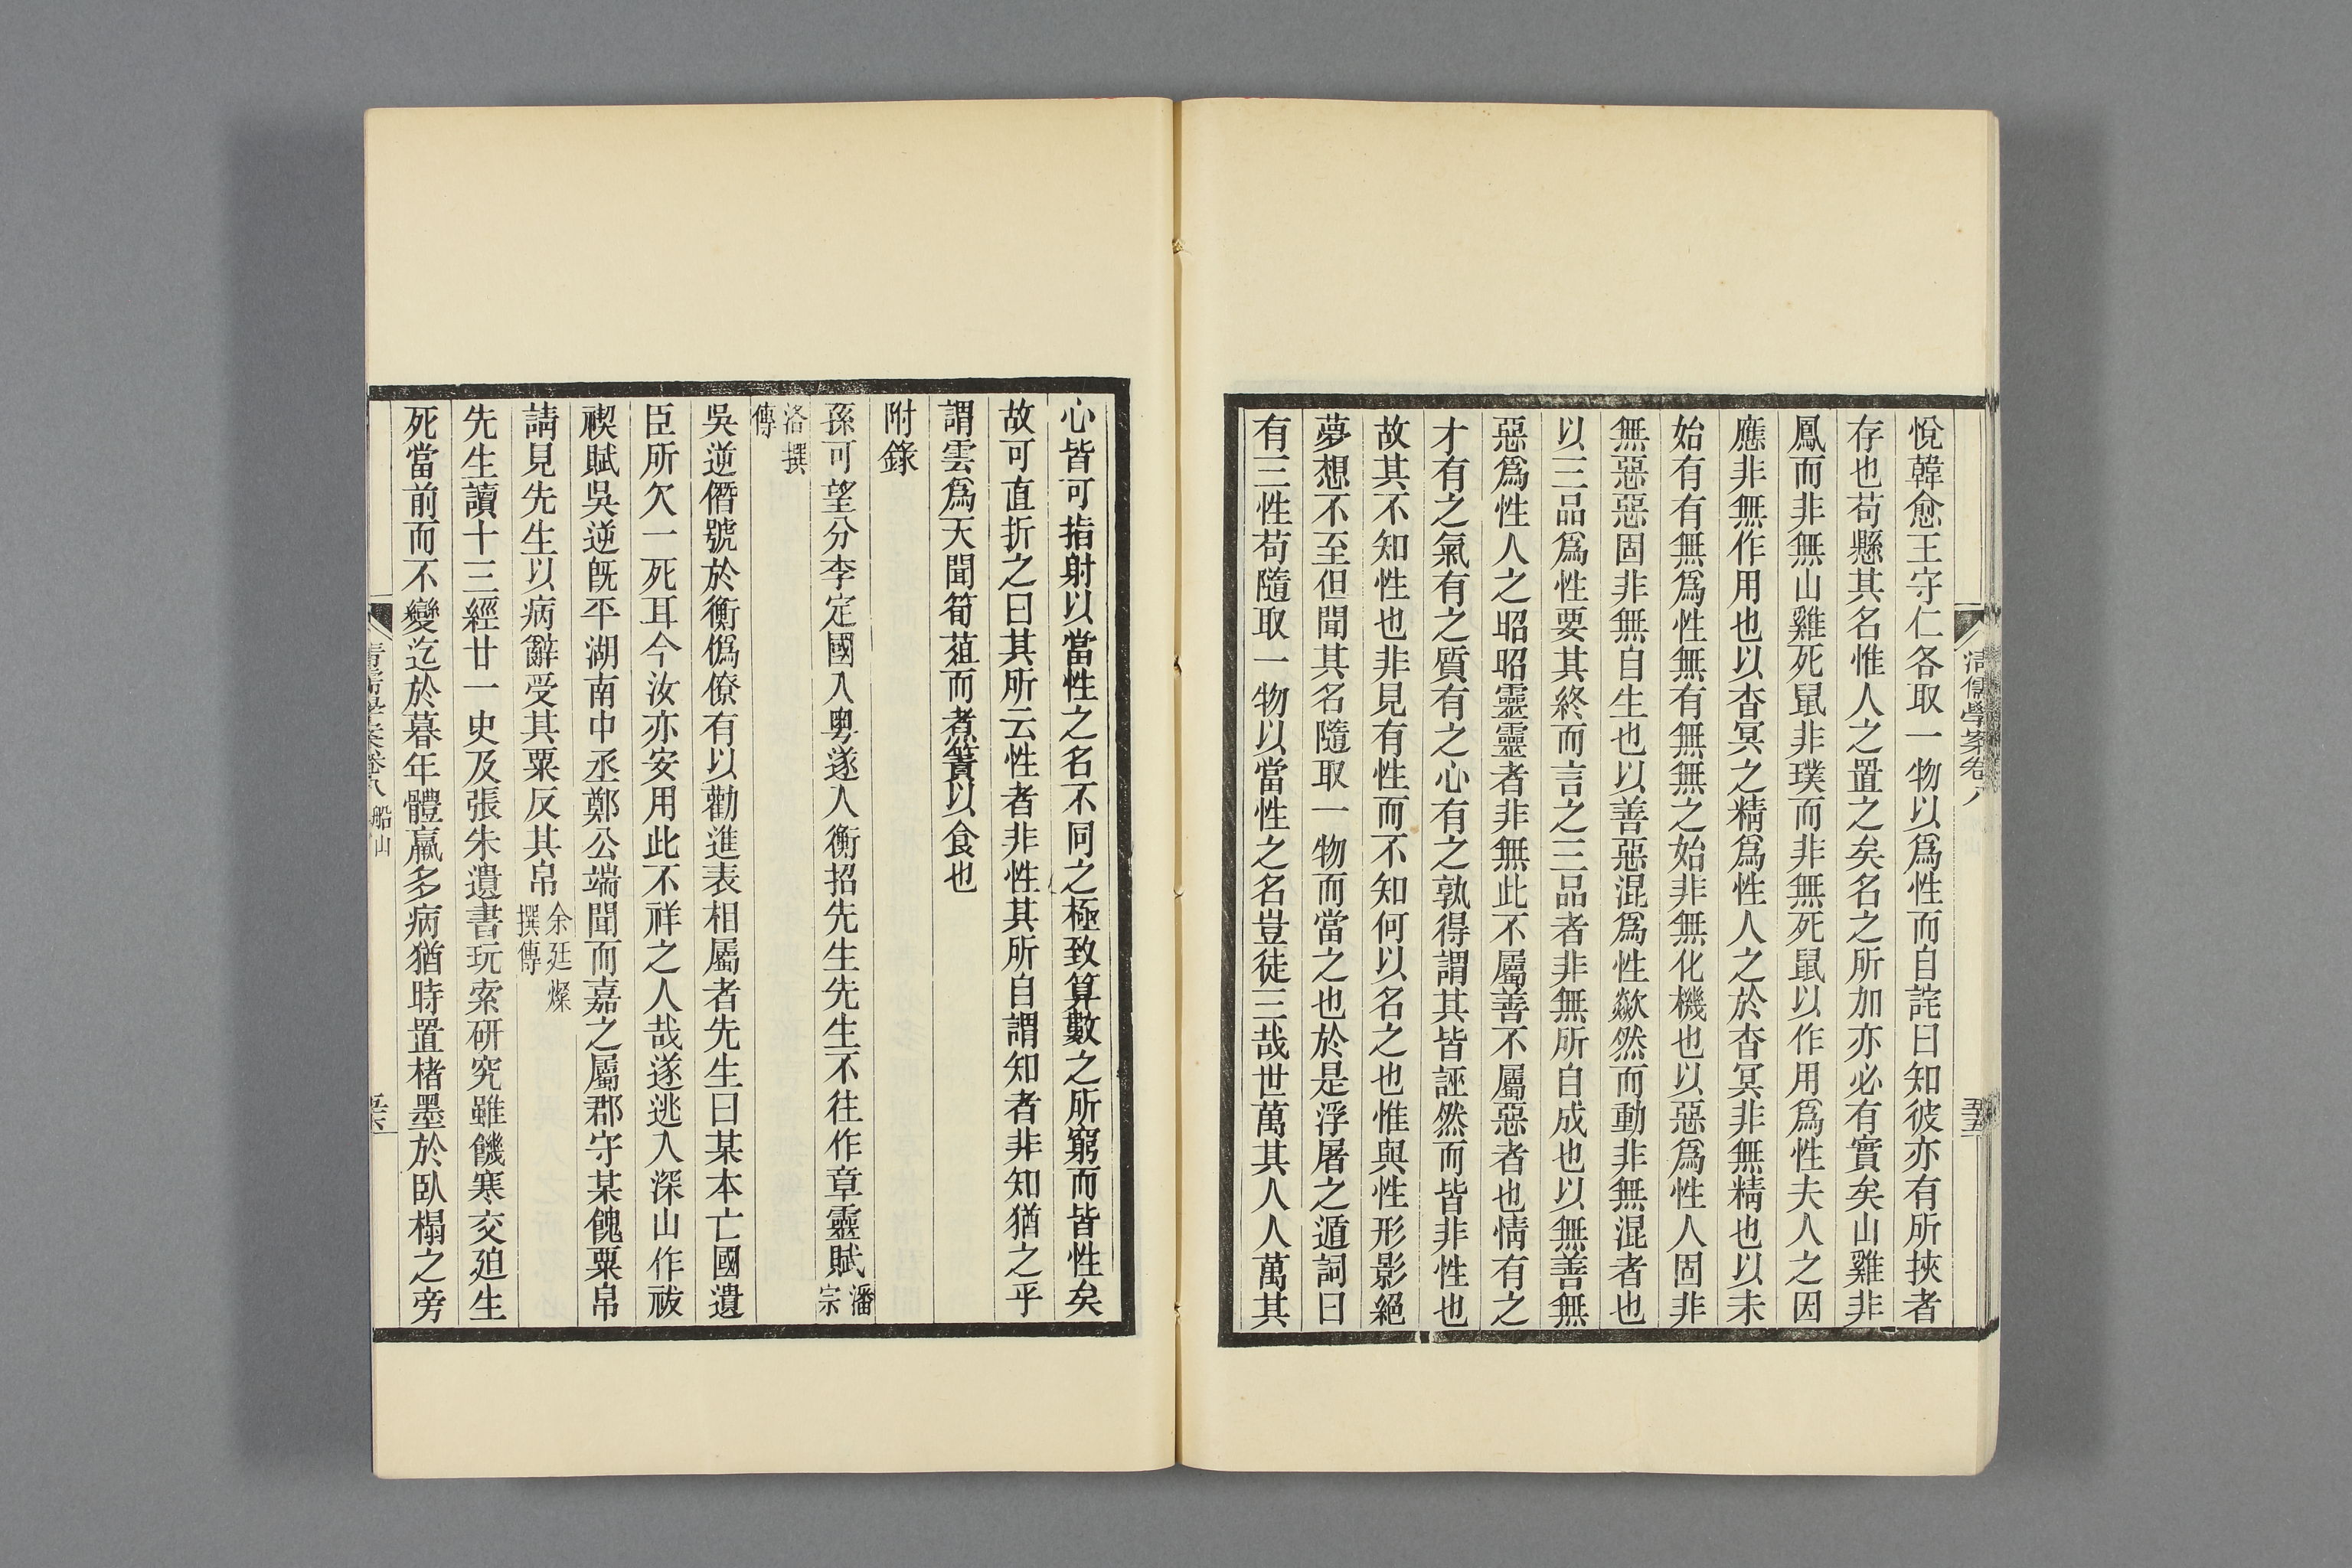 清儒學案卷八
五十五
悅韓愈王守仁各取一物以爲性而自詫曰知彼亦有所挾者
存也苟懸其名惟人之置之矣名之所加亦必有實矣山雞非
鳳而非無山雞死鼠非璞而非無死鼠以作用爲性夫人之因
應非無作用也以杳冥之精爲性人之於杳冥非無精也以未
始有有無爲性無有無無之始非無化機也以惡爲性人固非
無惡惡固非無自生也以善惡混爲性歘然而動非無混者也
以三品爲性要其終而言之三品者非無所自成也以無善無
惡爲性人之昭昭靈靈者非無此不屬善不屬惡者也情有之
才有之氣有之質有之心有之孰得謂其皆誣然而皆非性也
故其不知性也非見有性而不知何以名之也惟與性形影絕
夢想不至但聞其名隨取一物而當之也於是浮屠之遁詞曰
有三性苟隨取一物以當性之名豈徒三哉世萬其人人萬其
心皆可指射以當性之名不同之極致算數之所窮而皆性矣
故可直折之曰其所云性者非性其所自謂知者非知猶之乎
謂雲爲天聞筍菹而煮簀以食也
附錄
孫可望分李定國入粵遂入衡招先生先生不往作章靈賦潘宗
洛撰傳
吳逆僭號於衡僞僚有以勸進表相屬者先生曰某本亡國遺
臣所欠一死耳今汝亦安用此不祥之人哉遂逃入深山作祓
禊賦吳逆旣平湖南中丞鄭公端聞而嘉之屬郡守某餽粟帛
請見先生以病辭受其粟反其帛余廷燦撰傳
先生讀十三經廿一史及張朱遺書玩索研究雖饑寒交廹生
死當前而不變迄於暮年體羸多病猶時置楮墨於臥榻之旁
清儒學案卷八 船山